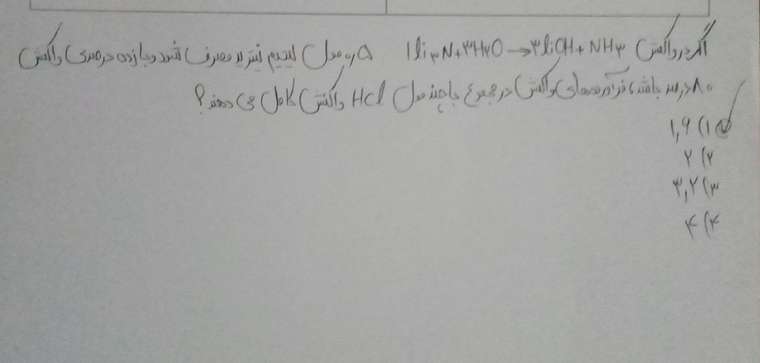 اگر در واکنش 1Li₃N + ۳H₂O → ۳LiOH + NH₃ ۰٫۵ مول لیتیم نیترید مصرف شود و بازده درصدی واکنش
۸۰ درصد باشد، فرآورده‌های واکنش در مجموع با چند مول HCl واکنش کامل می دهند؟
۱) ۱,۶
۲) ۲
۳) ۳,۲
۴) ۴